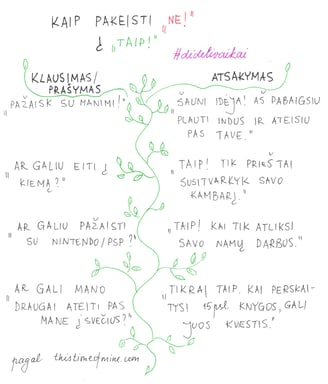 KAIP PAKEISTI „NE!"
Į „TAIP!"
#didelivaikai
KLAUSIMAS/
PRAŠYMAS
ATSAKYMAS
„PAŽAISK SU MANIMI!"
„ŠAUNI IDĖJA! AŠ PABAIGSIU
PLAUTI INDUS IR ATEISIU
PAS TAVE."
„AR GALIU EITI Į
KIEMĄ?"
„TAIP! TIK PRIEŠ TAI
SUSITVARKYK SAVO
KAMBARĮ."
„AR GALIU PAŽAISTI
SU NINTENDO/PSP?"
„TAIP! KAI TIK ATLIKSI
SAVO NAMŲ DARBUS."
„AR GALI MANO
DRAUGAI ATEITI PAS
MANE Į SVEČIUS?"
„TIKRAI TAIP. KAI PERSKAI-
TYSI 15psl KNYGOS, GALI
JUOS KVIESTIS."
pagal thistimeofmine.com